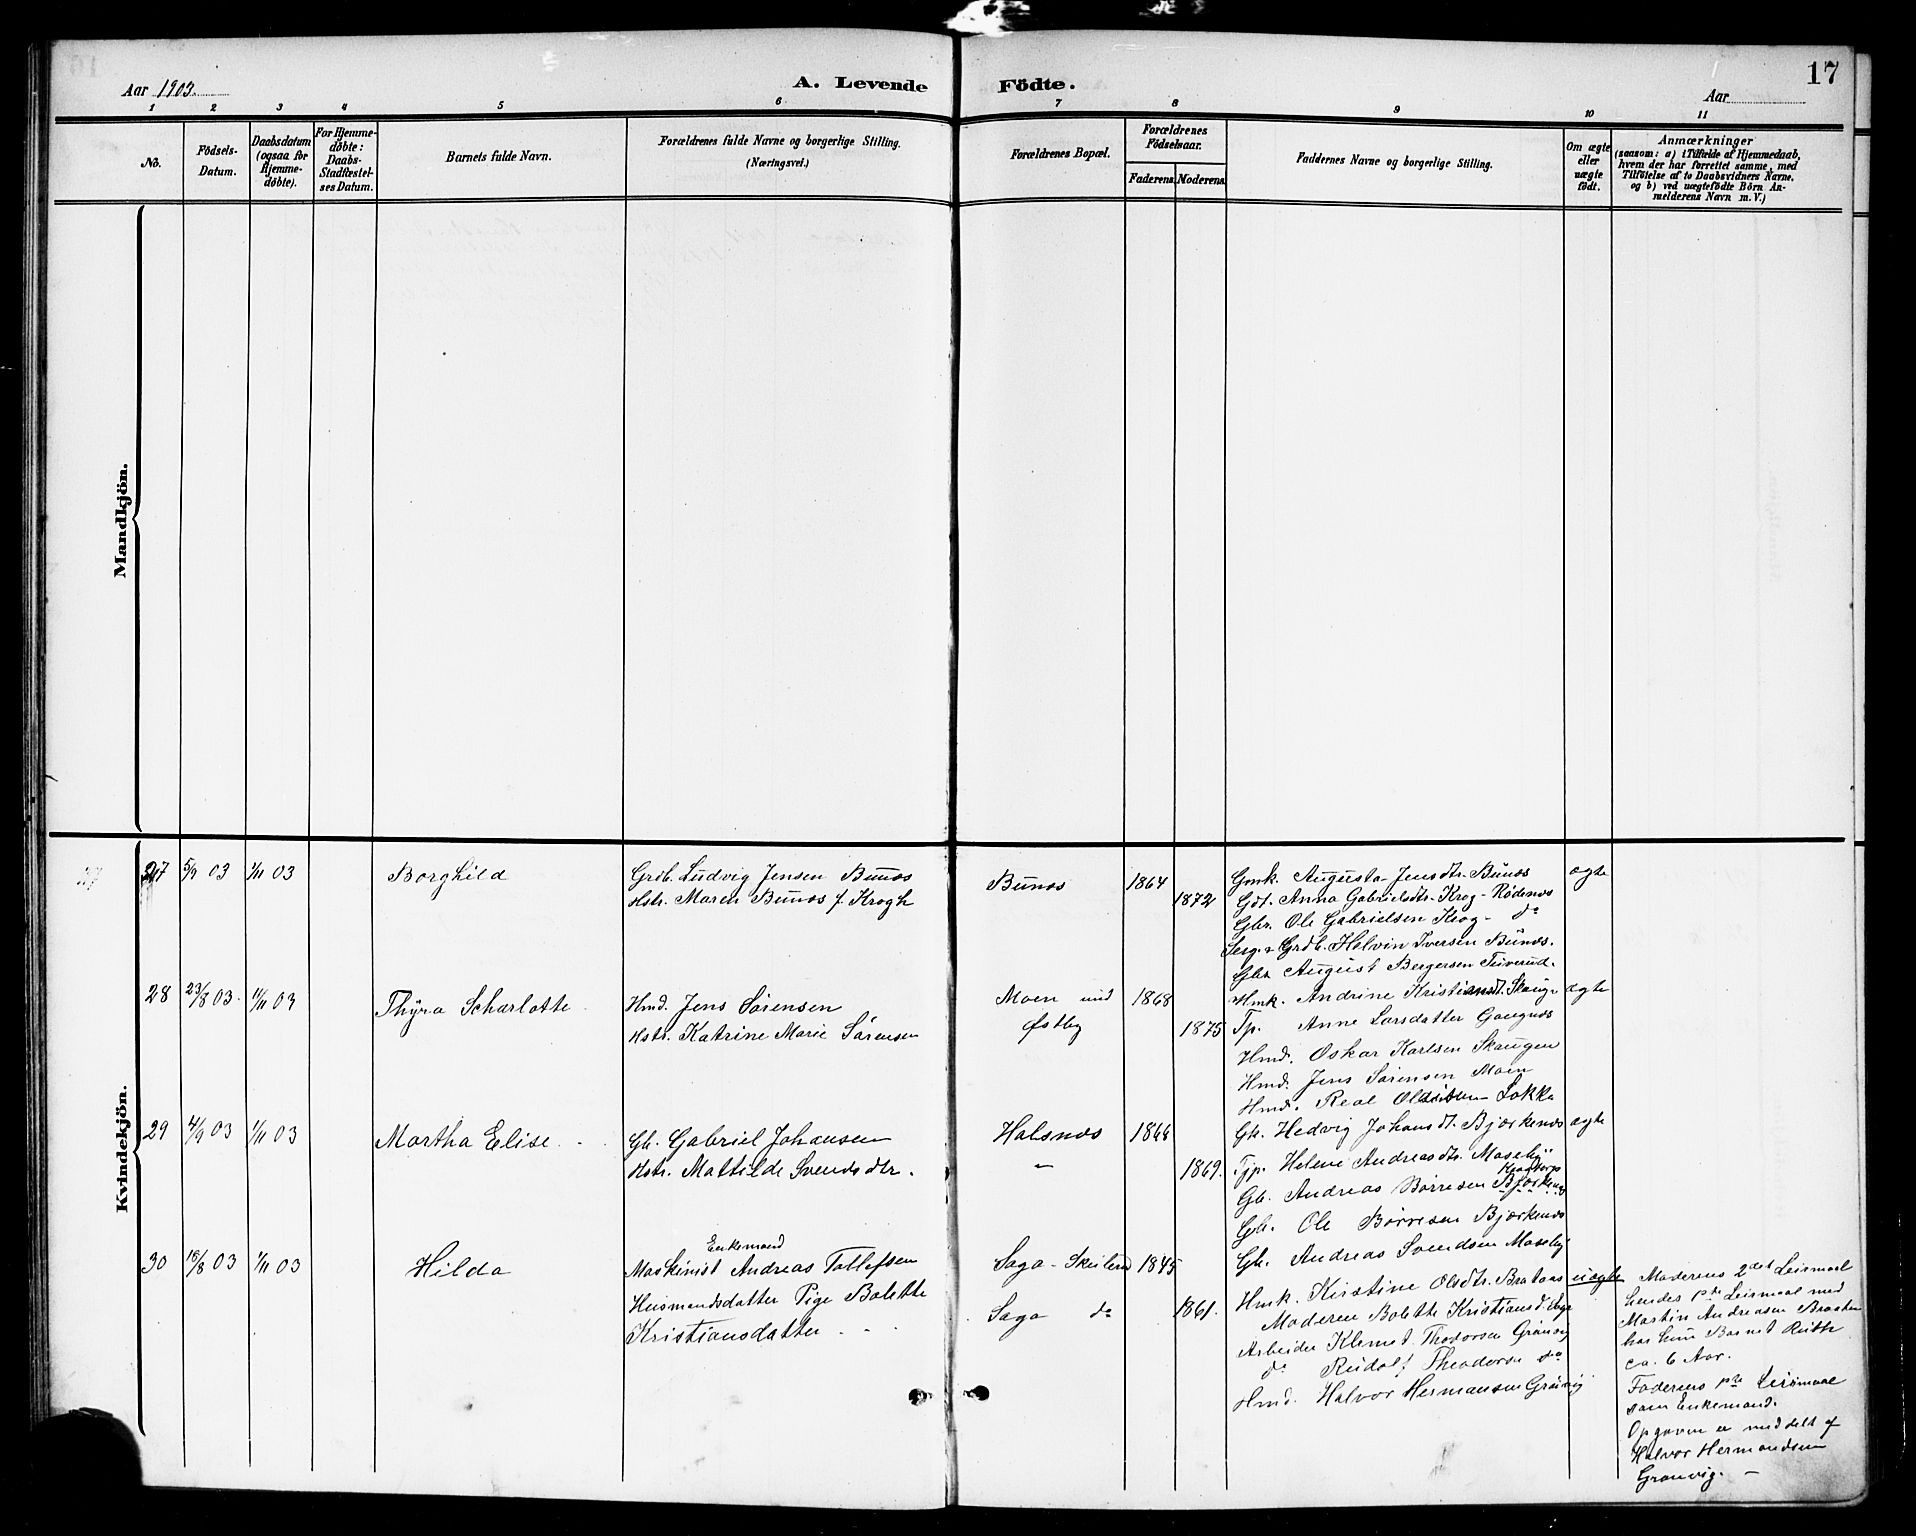 17
Aar 1903.
A. Levende
Födte.
Aar
1 2 3 4 5 6 7 8 9 10 11
No.
Födsels-
Datum.
Daabsdatum
(ogsaa for
Hjemme-
døbte).
For Hjemme-
døbte:
Daabs-
Stadfæstel-
ses Datum.
Barnets fulde Navn.
Forældrenes fulde Navne og borgerlige Stilling.
(Næringsvei.)
Forældrenes Bopæl.
Forældrenes
Födselsaar.
Faderens. Moderens.
Faddernes Navne og borgerlige Stilling.
Om ægte
eller
uægte
födt.
Anmærkninger
(saasom: a) i Tilfælde af Hjemmedaab,
hvem der har forrettet samme, med
Tilföielse af to Daabsvidners Navne,
og b) ved uægtefödte Börn An-
melderens Navn m. V.)
Mandkjön.
Kvindekjön.
27 5/9 03 1/11 03
Borghild
Grdb. Ludvig Jensen Bunæs
Hstr. Maren Bunæs f. Krogh
Bunæs
1864
1872
Gmk. Augusta Jensdtr. Bunæs
Gdt. Anna Gabrielsdtr. Krog - Rödenæs
Gbr. Ole Gabrielsen Krog - do
Serg. & Grdb. Helvin Iversen Bunæs.
Gbr. August Bergersen Tuverud.
ægte
28 23/8 03. 1/11 03
Thyra Scharlotte
Hmd. Jens Sørensen
Hstr. Katrine Marie Sørensen
Moen und
Østby
1868
1875
Hmk. Andrine Kristiansdt. Skaug
Tp. Anne Larsdatter Gaugnæs
Hmd. Oskar Karlsen Skaugen
Hmd. Jens Sørensen Moen
Hmd. Real Olausen Løkka
ægte
29 4/9 03 1/11 03
Martha Elise
Gb. Gabriel Johansen
Hstr. Mathilde Svendsdtr.
Halsnæs
-
1866
1869.
Gk. Hedvig Johansdt. Bjørkenæs
Tjp. Helene Andreasdtr. Moseby
Gb. Andreas Børresen Bjørkenæs
Gb. Ole Børresen Bjørkenæs
Gb. Andreas Svendsen Moseby
ægte
30 18/8 03 1/11 03
Hilda
Enkemand
Maskinist Andreas Tollefsen
Husmandsdatter Pige Bolette
Kristiansdatter
Saga - Skulerud
Saga do
1845
1861.
Hmk. Kirstine Olsdtr. Brataas
Moderen Bolette Kristiansd.
Arbeider Klemet Thodorsen Grönvig
do Rudolf Theodorsen do
Hmd. Halvor Hermansen Grönvig
uægte
Moderens 2det Leiermaal
hendes 1ste Leiermaal med
Martin Andreasen Braaten
har hun Barnet Ruth
ca. 6 Aar.
Faderens 1ste Leiermaal
som Enkemand.
Opgaven er meddelt af
Halvor Hermandsen
Grønvig. -